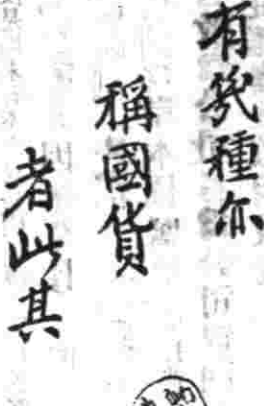 有幾種亦
稱國貨
者此其